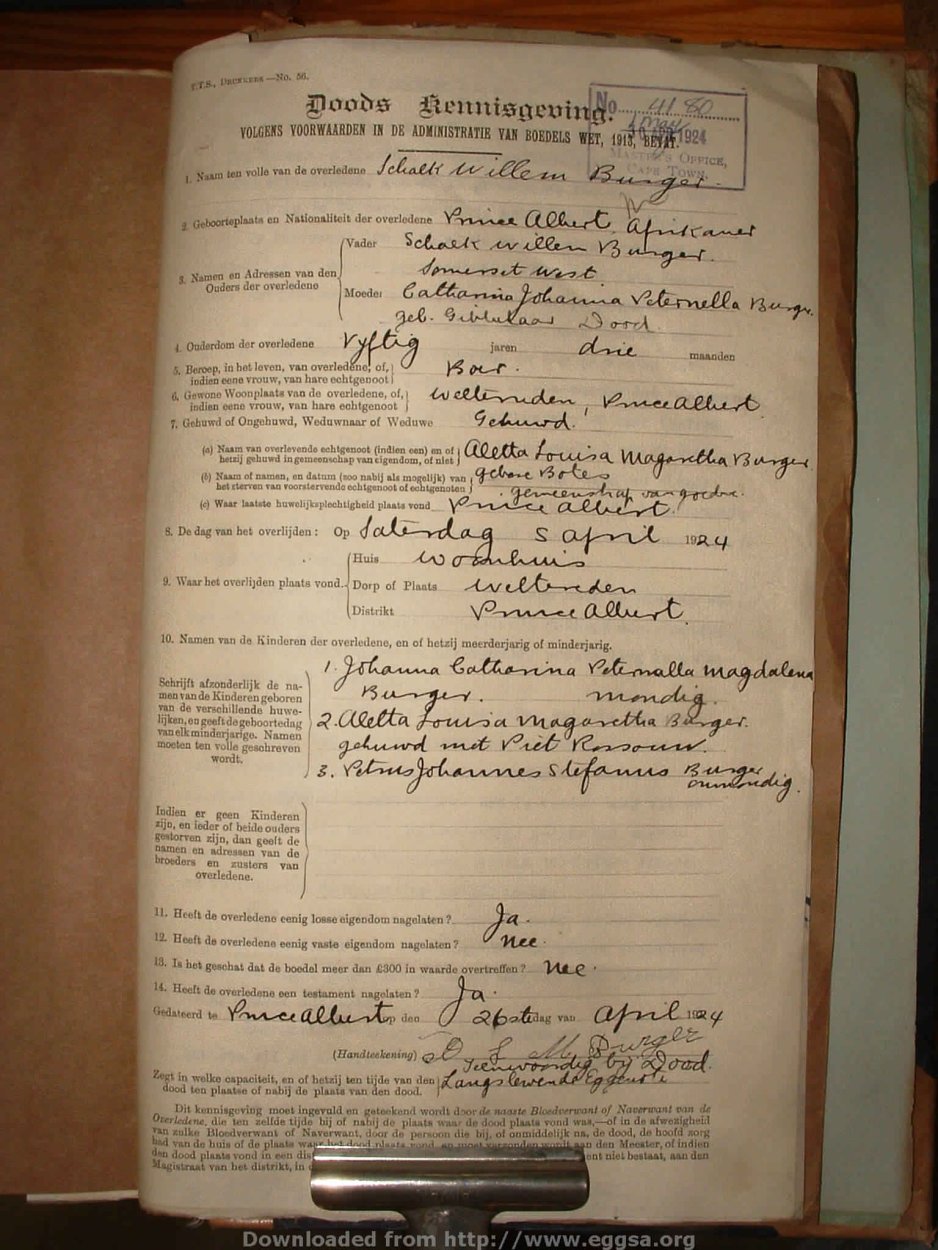 T.T.S., DRUKKERS—No. 56.
Doods Kennisgeving.
VOLGENS VOORWAARDEN IN DE ADMINISTRATIE VAN BOEDELS WET, 1913, BEVAT.
No. 4180
May
1924
MASTER'S OFFICE,
CAPE TOWN.
1. Naam ten volle van de overledene Schalk Willem Burger.
2. Geboorteplaats en Nationaliteit der overledene Prince Albert, Afrikaner
3. Namen en Adressen van den Ouders der overledene
Vader Schalk Willem Burger.
Somerset West
Moeder Catharina Johanna Peternella Burger.
geb. Dood.
4. Ouderdom der overledene Vyftig jaren drie maanden
5. Beroep, in het leven, van overledene, of, indien eene vrouw, van hare echtgenoot Boer.
6. Gewone Woonplaats van de overledene, of, indien eene vrouw, van hare echtgenoot Weltevreden, Prince Albert
7. Gehuwd of Ongehuwd, Weduwnaar of Weduwe Gehuwd.
(a) Naam van overlevende echtgenoot (indien een) en of hetzij gehuwd in gemeenschap van eigendom, of niet Aletta Louisa Magaretha Burger
gebore Botes
(b) Naam of namen, en datum (zoo nabij als mogelijk) van het sterven van voorstervende echtgenoot of echtgenoten
gemeenschap van goedre.
(c) Waar laatste huwelijksplechtigheid plaats vond Prince Albert.
8. De dag van het overlijden: Op Saterdag 5 April 1924
9. Waar het overlijden plaats vond.
Huis Woonhuis
Dorp of Plaats Weltevreden
Distrikt Prince Albert.
10. Namen van de Kinderen der overledene, en of hetzij meerderjarig of minderjarig.
Schrijft afzonderlijk de na-
men van de Kinderen geboren
van de verschillende huwe-
lijken, en geeft de geboortedag
van elk minderjarige. Namen
moeten ten volle geschreven
wordt.
1. Johanna Catharina Peternalla Magdalena
Burger. mondig.
2. Aletta Louisa Magaretha Burger.
gehuwd met Piet Rossouw.
3. Petrus Johannes Stefanus Burger
onmondig.
Indien er geen Kinderen
zijn, en ieder of beide ouders
gestorven zijn, dan geeft de
namen en adressen van de
broeders en zusters van
overledene.
11. Heeft de overledene eenig losse eigendom nagelaten? Ja.
12. Heeft de overledene eenig vaste eigendom nagelaten? Nee.
13. Is het geschat dat de boedel meer dan £300 in waarde overtreffen? Nee.
14. Heeft de overledene een testament nagelaten? Ja.
Gedateerd te Prince Albert op den 26ste dag van April 1924
(Handteekening) L M Burger
Teenwoordig by Dood.
Zegt in welke capaciteit, en of hetzij ten tijde van den
dood ten plaatse of nabij de plaats van den dood. Langslewende Eggenote
Dit kennisgeving moet ingevuld en geteekend wordt door de naaste Bloedverwant of Naverwant van de
Overledene, die ten zelfde tijde bij of nabij de plaats waar de dood plaats vond was,—of in de afwezigheid
van zulke Bloedverwant of Naverwant, door de persoon die bij, of onmiddelijk na, de dood, de hoofd zorg
had van de huis of de plaats waar het dood plaats vond, en moet verzonden wordt aan den Meester, of indien
den dood plaats vond in een ent niet bestaat, aan den
Magistraat van het distrikt, in
Downloaded from http://www.eggsa.org